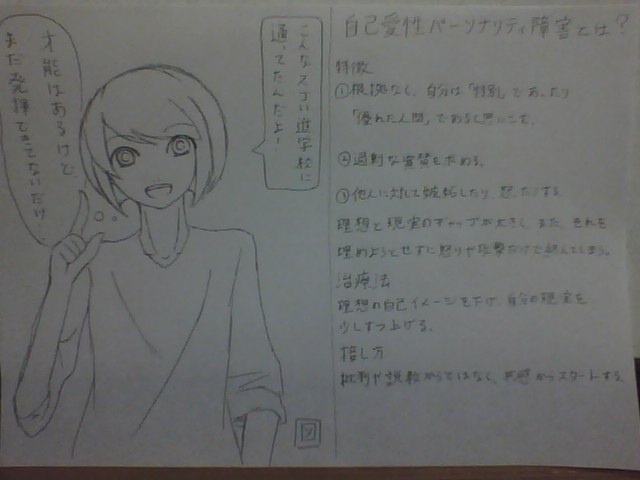 才能はあるけど、
まだ発揮できてないだけ
こんなスゴい進学校に
通ってたんだよ!
自己愛性パーソナリティ障害とは?
特徴
①根拠なく、自分は「特別」であったり
「優れた人間」であると思いこむ。
②過剰な賞賛を求める。
③他人に対して嫉妬したり、怒ったりする。
理想と現実のギャップが大きく、また、それを
埋めようとせずに怒りや攻撃だけで終えてしまう。
治療法
理想の自己イメージを下げ、自分の現実を
少しずつ上げる。
指し方
批判や説教からではなく、共感からスタートする。